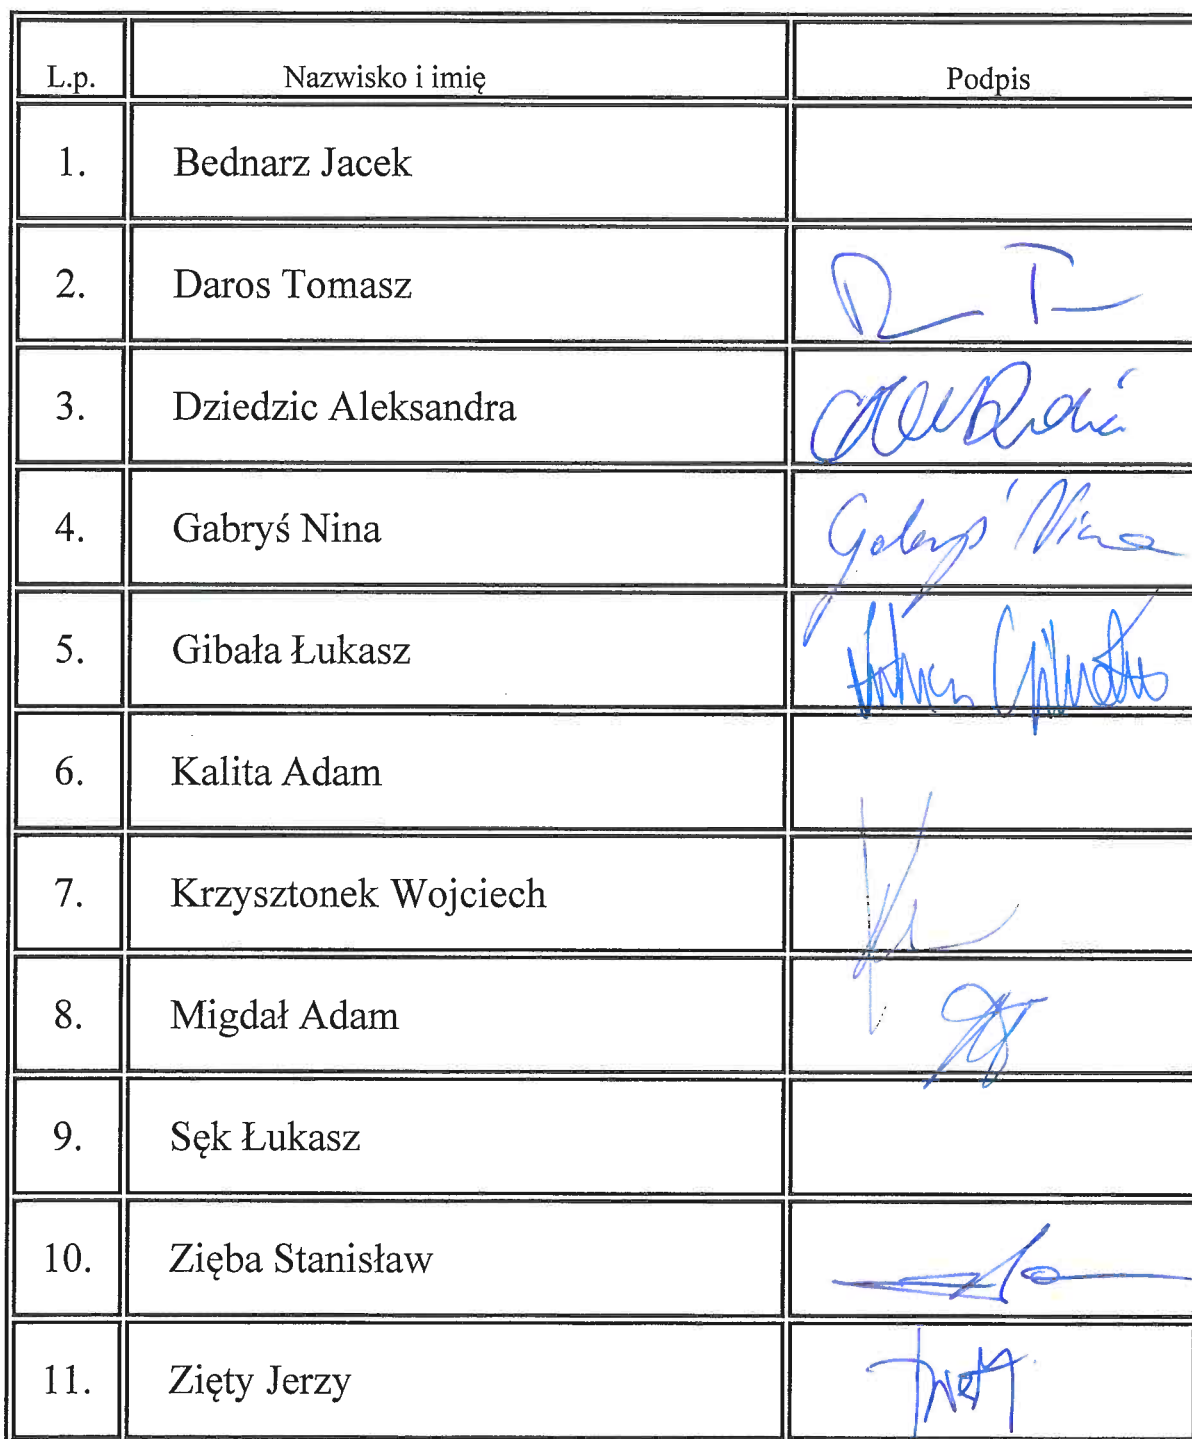 L.p. Nazwisko i imię Podpis
1. Bednarz Jacek
2. Daros Tomasz
3. Dziedzic Aleksandra
4. Gabryś Nina Gabryś Nina
5. Gibała Łukasz
6. Kalita Adam
7. Krzysztonek Wojciech
8. Migdał Adam
9. Sęk Łukasz
10. Zięba Stanisław
11. Zięty Jerzy